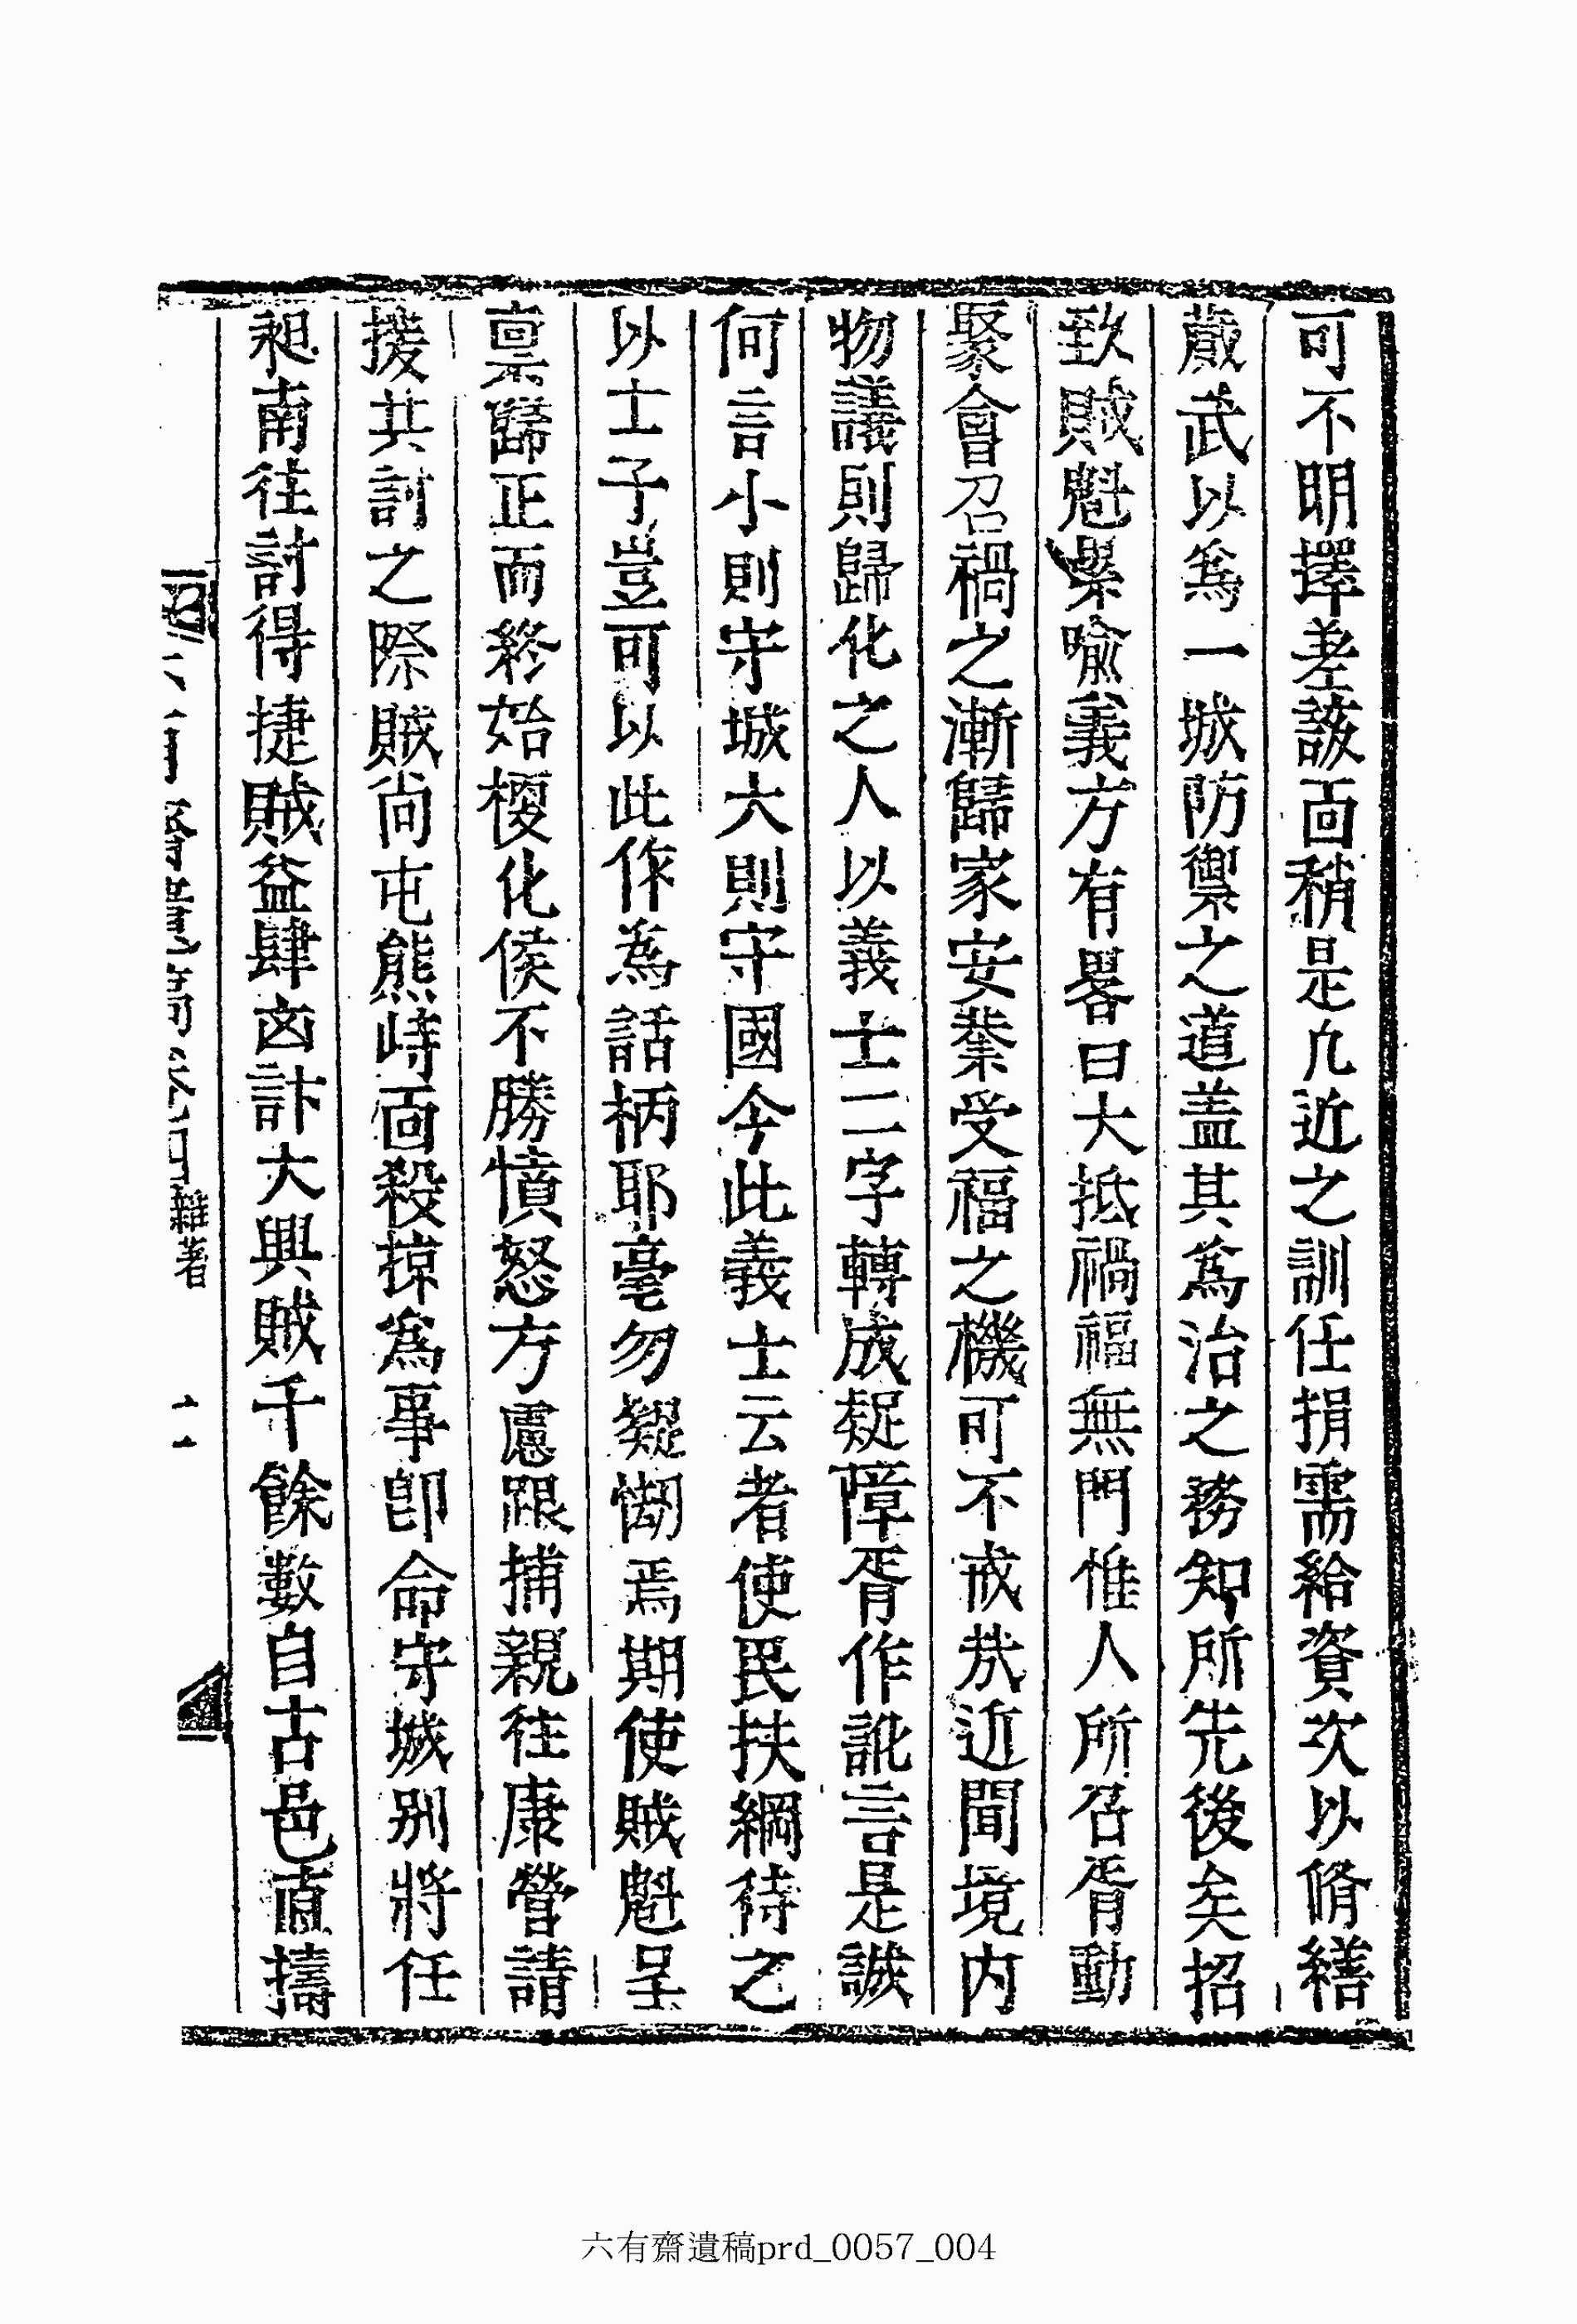 可不明擇差該面稍是凢近之訓任捐需給資次以脩繕
蕆武以爲一城防禦之道盖其爲治之務知所先後矣招
致賊魁㬎喻義方有畧曰大抵禍福無門惟人所召胥動
聚會召禍之漸歸家安業受福之機可不戒㢤近聞境內
物議則歸化之人以義士二字轉成疑障胥作訛言是誠
何言小則守城大則守國今此義士云者使民扶綱待之
以士子豈可以此作為話柄耶毫勿疑㥘焉期使賊魁呈
稟歸正而終始梗化侯不勝憤怒方慮跟捕親往康營請
援共討之際賊尙屯熊峙面殺掠爲事卽命守城别將任
昶南往討得捷賊益肆凶計大興賊千餘數自古邑直擣
六有齋遺稿卷 雜著
二
六有齋遺稿prd_0057_004